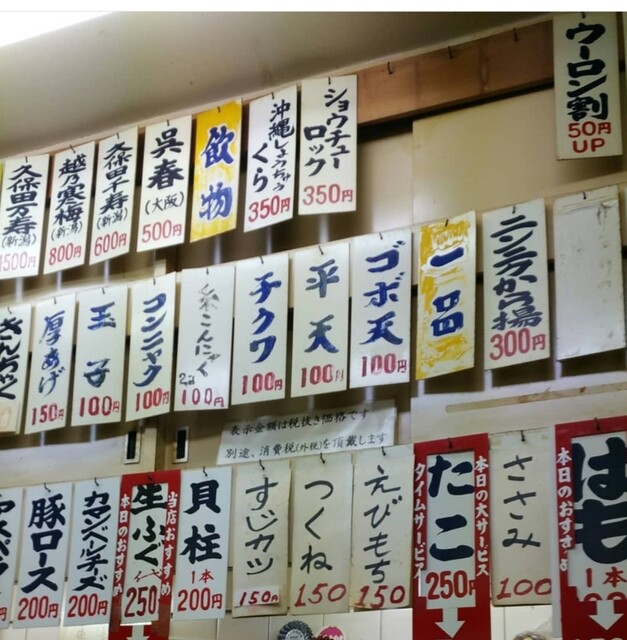 ウーロン割
50円
UP
ショウチュー
ロック
350円
沖縄しょうちゅう
くら
350円
飲物
呉春
(大阪)
500円
久保田千寿
(新潟)
600円
越乃寒梅
(新潟)
800円
久保田万寿
(新潟)
1500円
ニンニクから揚
300円
一品
ゴボ天
100円
平天
100円
チクワ
100円
糸こんにゃく
2コ
100円
コンニャク
100円
玉子
100円
厚あげ
150円
表示金額は税抜き価格です
別途、消費税(外税)を頂戴します
はも
本日のおすすめ
1本
ささみ
100
本日の大サービス
たこ
タイムサービス
250円
えびもち
150
つくね
150
すじカツ
150円
貝柱
1本
200円
当店おすすめ
生ふぐ
本日のおすすめ
250
カマンベルチーズ
200円
豚ロース
200円